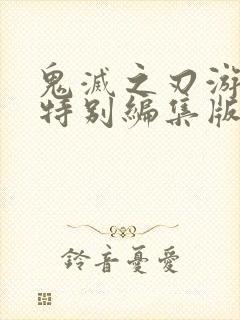 鬼滅之刃游
特别編集版
鈴音憂愛